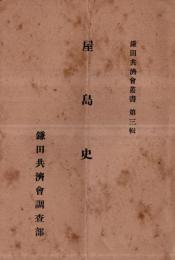 鎌田共濟會叢書 第三輯
屋島史
鎌田共濟會調査部